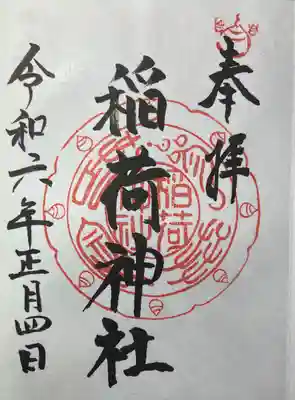 奉拝
稲荷神社
令和六年正月四日